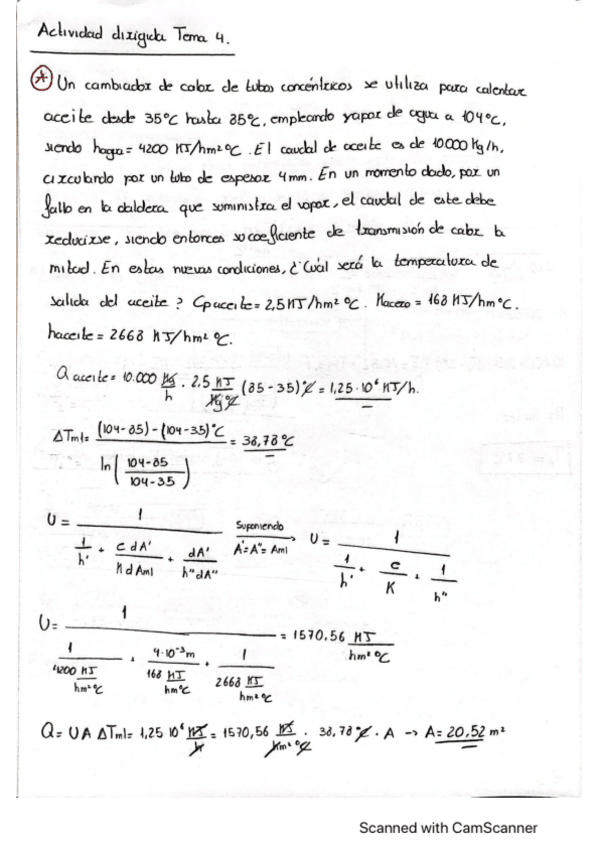 Actividad dirigida Tema 4.
(A) Un cambiador de calor de tubos concéntricos se utiliza para calentar
aceite desde 35ºC hasta 85ºC, empleando vapor de agua a 104ºC,
siendo hagua = 4200 KJ/hm²ºC. El caudal de aceite es de 10.000 Kg/h,
circulando por un tubo de espesor 4mm. En un momento dado, por un
fallo en la caldera que suministra el vapor, el caudal de este debe
reducirse, siendo entonces su coeficiente de transmisión de calor la
mitad. En estas nuevas condiciones, ¿Cuál será la temperatura de
salida del aceite? Cpaceite = 2,5 KJ/hm²ºC. Kacero = 168 KJ/hmºC.
haceite = 2668 KJ/hm²ºC.
Q aceite = 10.000 Kg/h · 2,5 KJ/KgºC (85-35)ºC = 1,25·10⁶ KJ/h.
ΔTml = (104-85)-(104-35)ºC / ln(104-85 / 104-35) = 38,78ºC
U = 1 / (1/h' + e dA'/K dAml + dA'/h'' dA'') Suponiendo A'=A''=Aml → U = 1 / (1/h' + e/K + 1/h'')
U = 1 / (1/4200 KJ/hm²ºC + 4·10⁻³m/168 KJ/hmºC + 1/2668 KJ/hm²ºC) = 1570,56 KJ/hm²ºC
Q = UA ΔTml = 1,25 10⁶ KJ/h = 1570,56 KJ/hm²ºC · 38,78ºC · A → A = 20,52 m²
Scanned with CamScanner